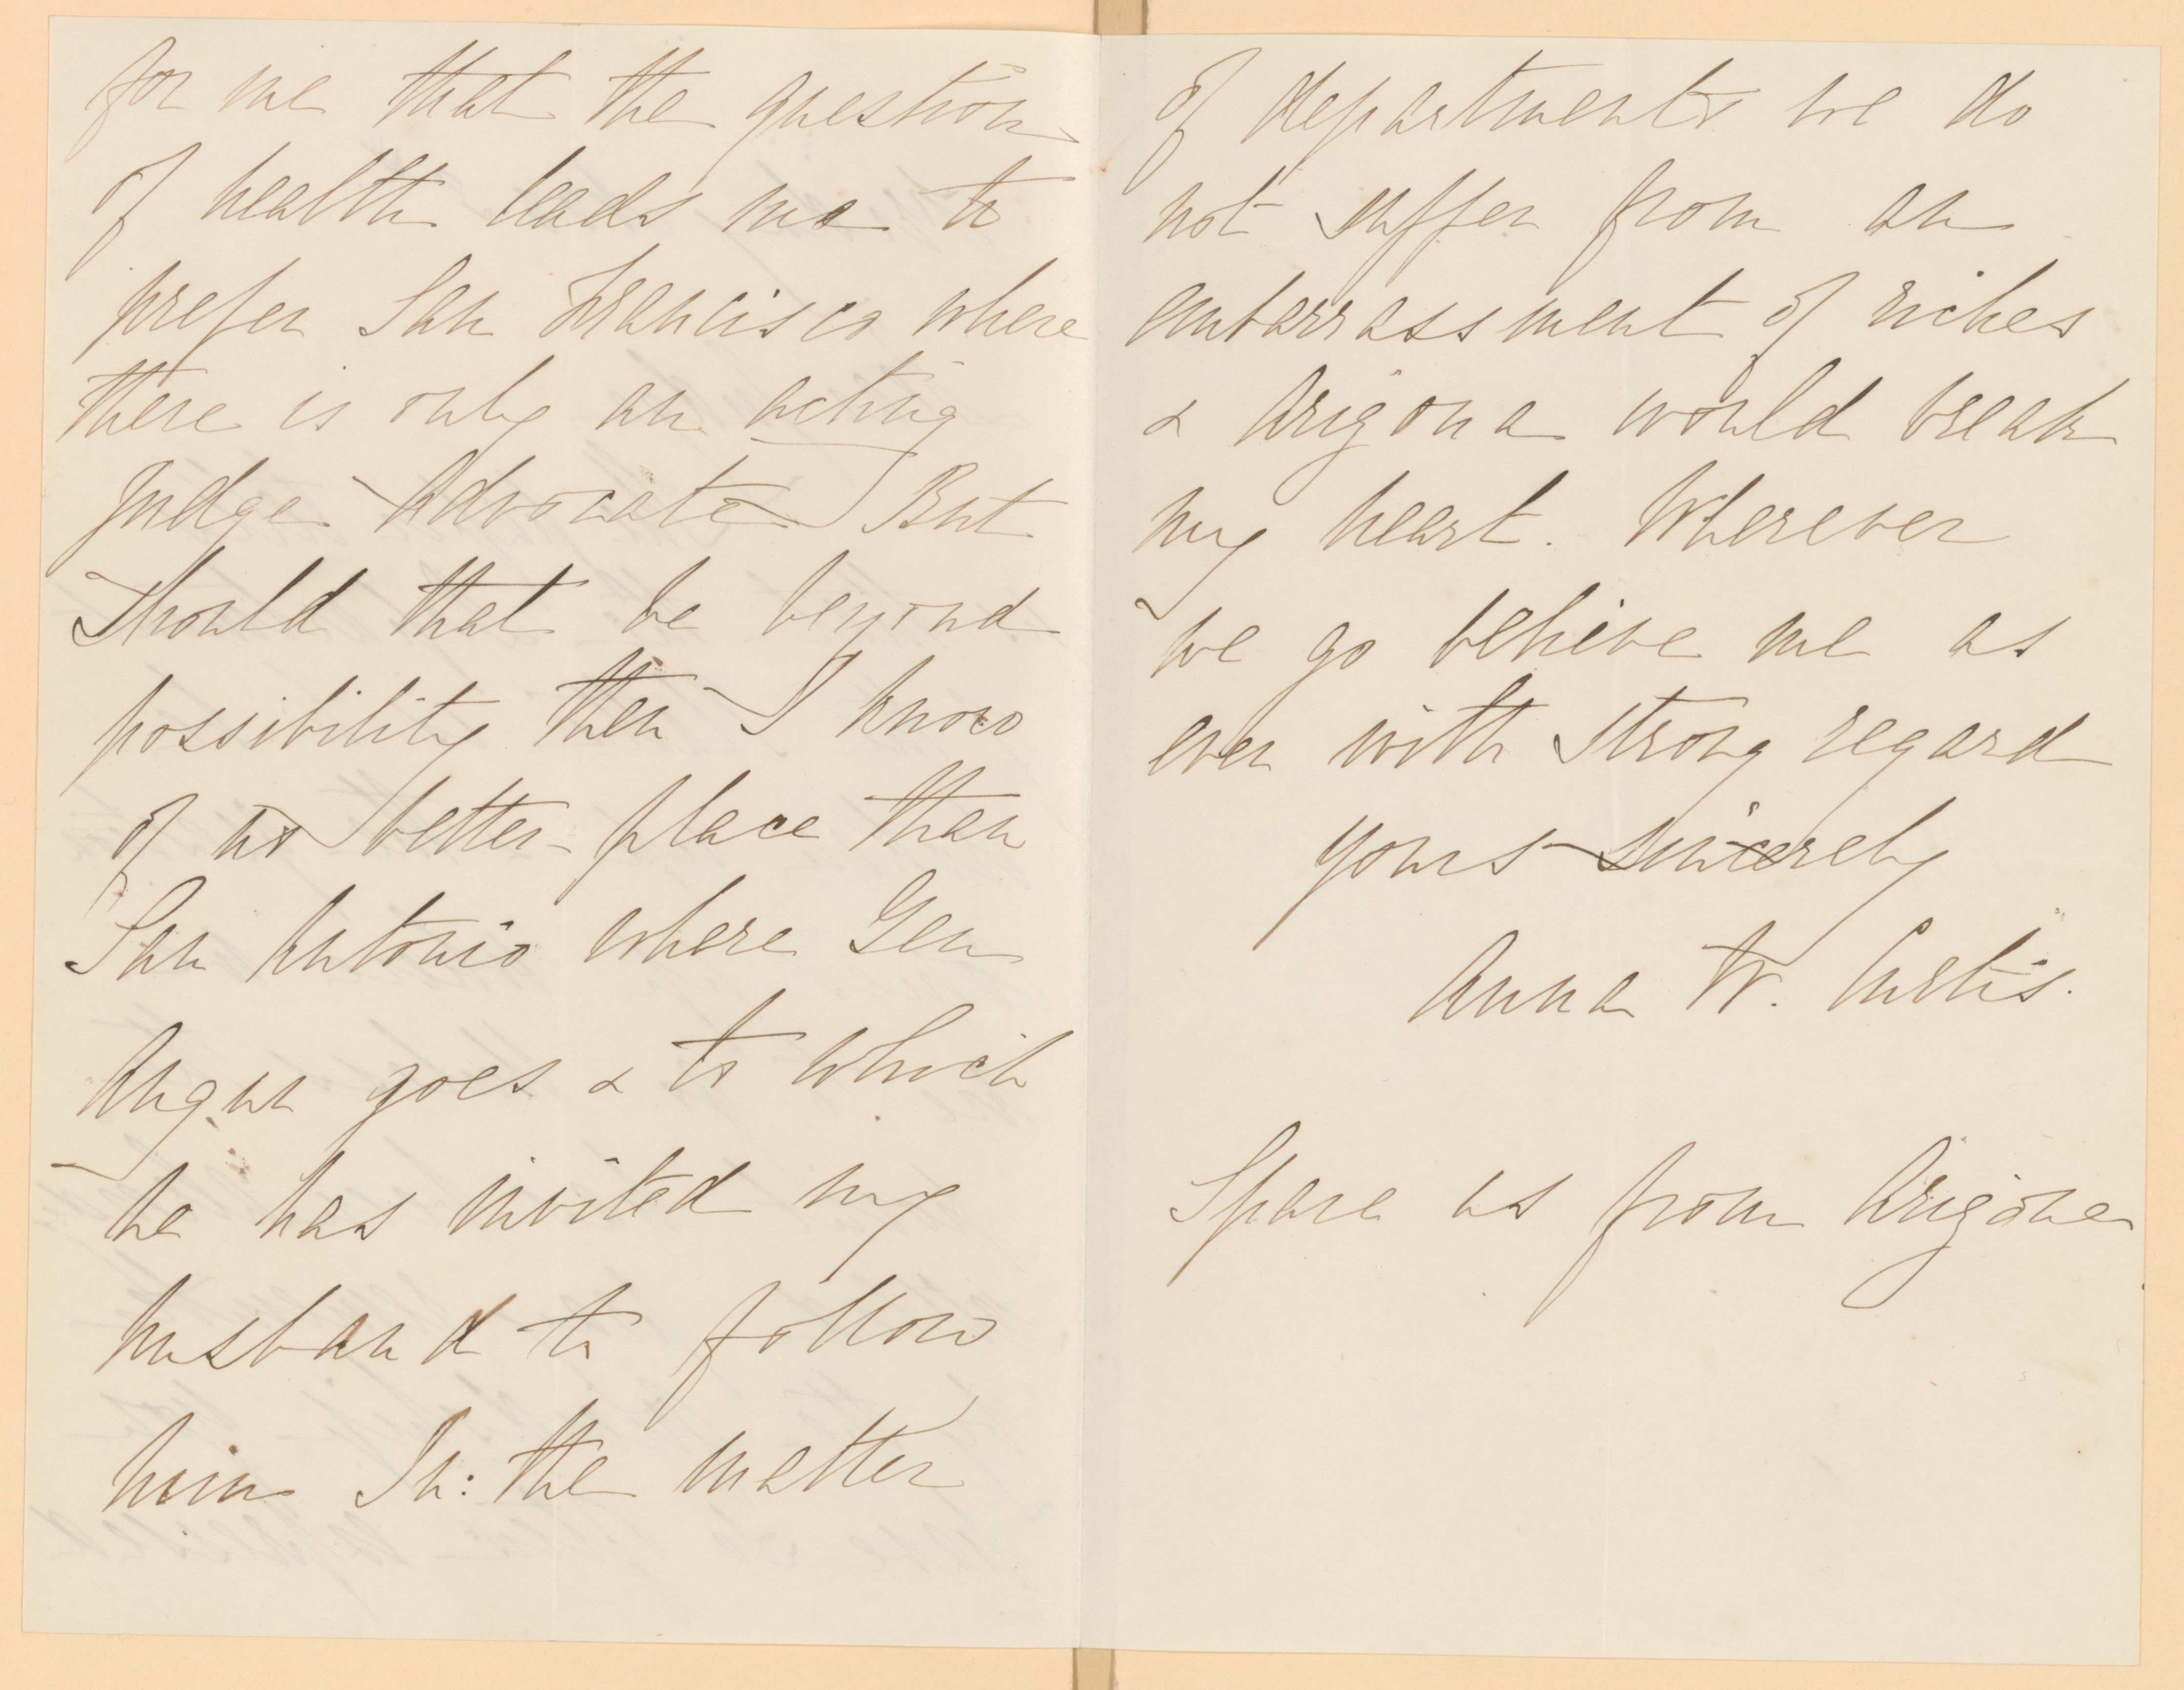 for me that the question
of health leads me to
prefer San Francisco where
there is only an acting
Judge Advocate But
Should that be beyond
possibility then I know
of no better place than
San Antonio where Gen
Augur goes & to which
he has invited my
husband to follow
him In: the matter
of departments we do
not suffer from an
embarrassment of riches
& Arizona would break
my heart. Wherever
we go believe me as
ever with strong regard
yours sincerely
Anna W. Curtis.
Spare us from Arizona